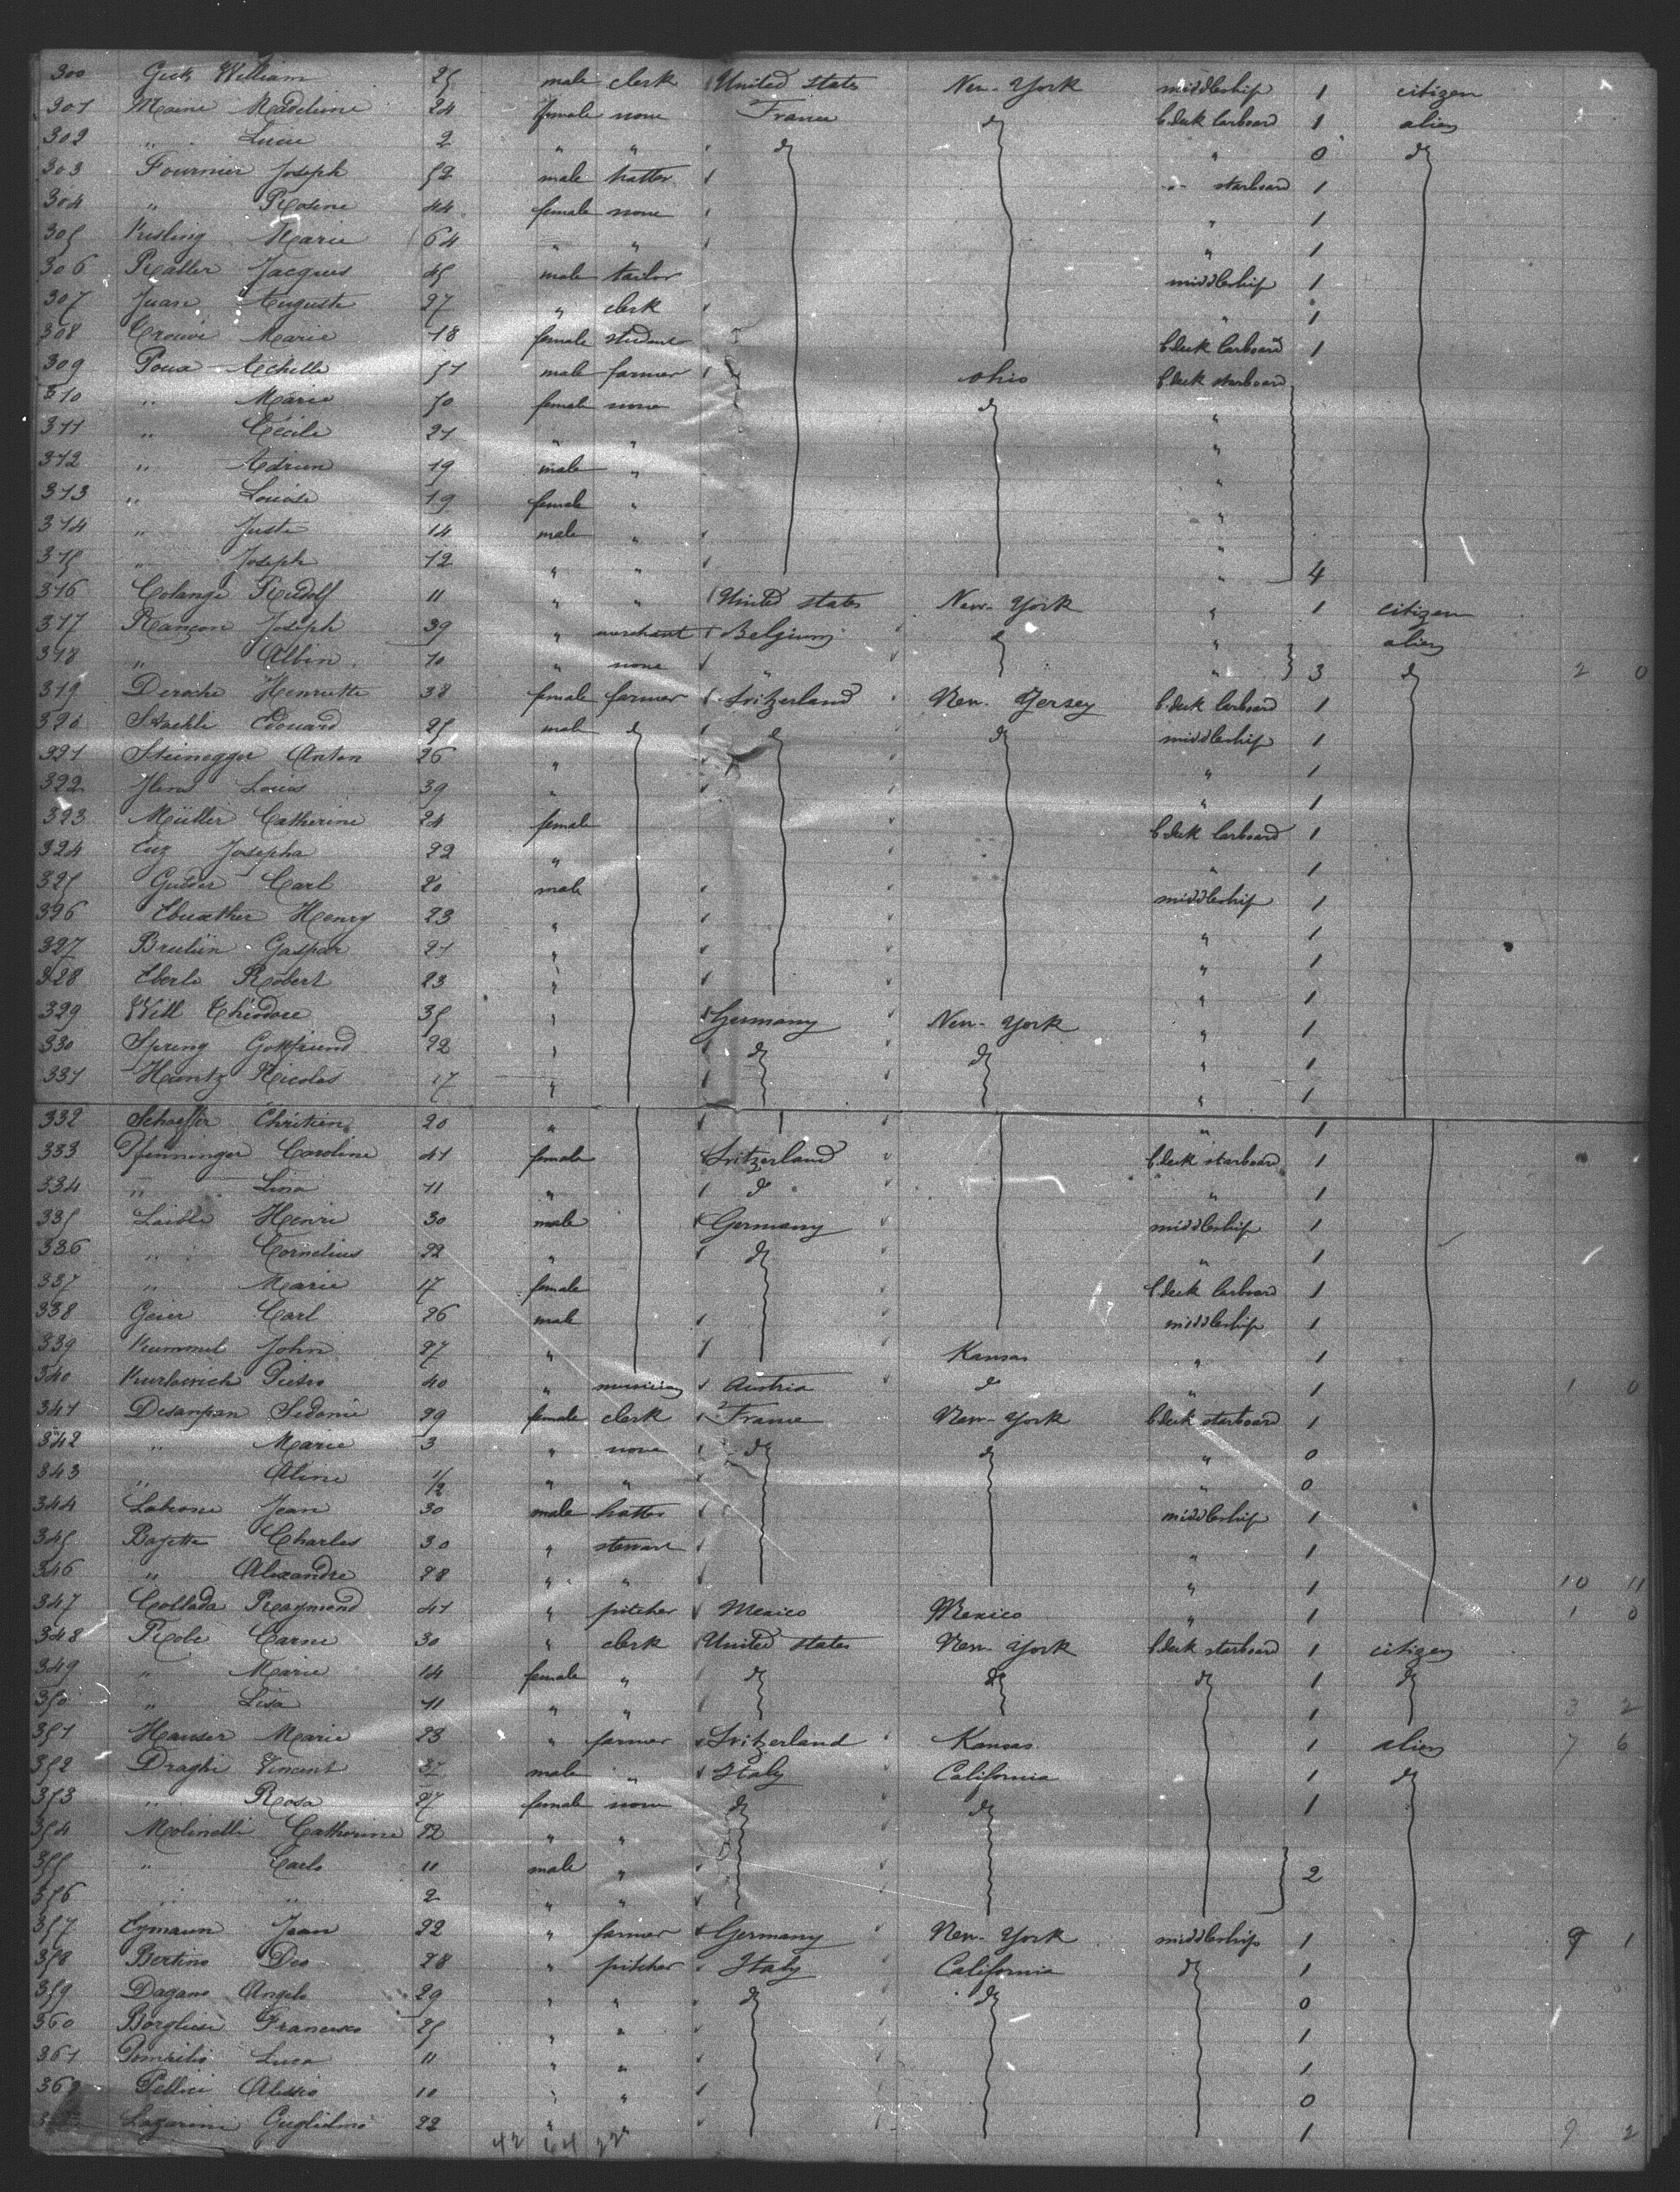 300 Geck William 25 male clerk United States New-York middleship 1 citizen
301 Madeleine 24 female none France d° C.deck larboard 1 alien
302 " Lucie 2 " " d° " 0 d°
303 Fournier Joseph 52 male hatter " starboard 1
304 " Rosine 44 female none " 1
305 Kisling Marie 64 " " " 1
306 Jacques 45 male tailor middleship 1
307 Juan Auguste 27 " clerk " 1
308 Marie 18 female student C.deck larboard 1
309 Achille 51 male farmer Ohio C.deck starboard
310 " Marie 50 female none d° "
311 " Cécile 21 " " "
312 " Adrien 19 male " "
313 " Louise 19 female " "
314 " Juste 14 male " "
315 " Joseph 12 " " " 4
316 Colange Rudolf 11 " " United States New-York " 1 citizen
317 Rançon Joseph 39 " merchant Belgium d° " alien
318 " Albin 10 " none " " 3 d° 2 0
319 Deroche Henriette 38 female farmer Switzerland New-Jersey C.deck larboard 1
320 Staehli Edouard 25 male d° d° d° middleship 1
321 Steinegger Anton 26 " " 1
322 Louis 39 " " 1
323 Müller Catherine 24 female C.deck larboard 1
324 Josepha 22 " " 1
325 Carl 20 male middleship 1
326 Henry 23 " " 1
327 Gaspar 21 " " 1
328 Eberle Robert 23 " " 1
329 Will Théodore 35 " Germany New-York " 1
330 Spring Gottfriend 22 " d° d° " 1
331 Nicolas 17 " " 1
332 Schaeffer Chritien 20 " " 1
333 Pfenninger Caroline 41 female Switzerland C.deck starboard 1
334 " Lina 11 " d° " 1
335 Laible Henri 30 male Germany middleship 1
336 " Cornelius 22 " d° " 1
337 " Marie 17 female C.deck larboard 1
338 Geier Carl 26 male middleship 1
339 Kummel John 27 " Kansas " 1
340 Pietro 40 " musician Austria d° " 1 1 0
341 Sidonie 29 female clerk France New-York C.deck starboard 1
342 " Marie 3 " none d° d° " 0
343 " Aline 1/2 " " " 0
344 Jean 30 male hatter middleship 1
345 Bazette Charles 30 " stewart " 1
346 " Alexandre 28 " " " 1 10 11
347 Collada Raymond 41 " pitcher Mexico Mexico " 1 1 0
348 Robe Carne 30 " clerk United States New-York C.deck starboard 1 citizen
349 " Marie 14 female " d° d° d° 1 d°
350 " Lisa 11 " " 1 3 2
351 Hauser Marie 23 " farmer Switzerland Kansas 1 alien 7 6
352 Draghi Vincent 37 male " Italy California 1 d°
353 " Rosa 27 female none d° d° 1
354 Molinelli Catherine 22 " "
355 " Carlo 11 male " 2
356 " " 2 " "
357 Eymann Jean 22 " farmer Germany New-York middleship 1 9 1
358 Bertino Deo 28 " pitcher Italy California d° 1
359 Dagano Angelo 29 " " d° d° 0
360 Borgliesi Francesco 25 " " 1
361 Pompilio Luca 11 " " 1
362 Pellici Alessio 10 " " 0
Lazarini Guglielmo 22 " 1 9 2
42 64 22